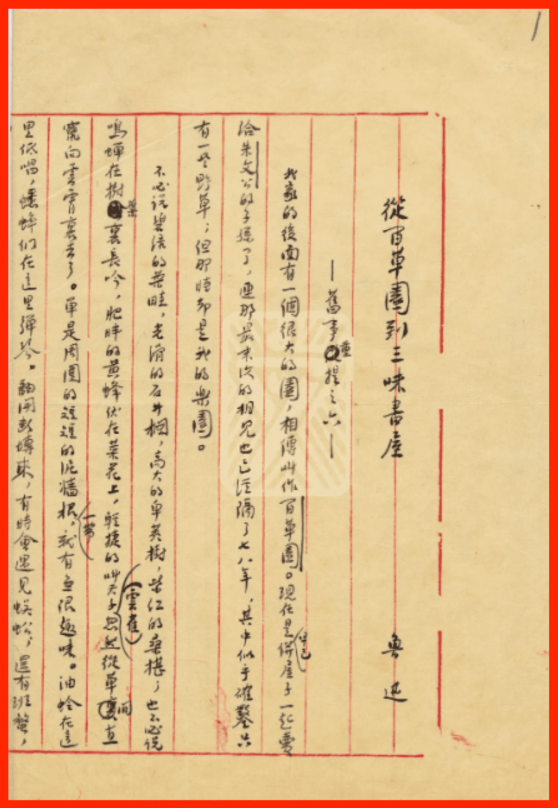 1
從百草園到三味書屋
魯迅
—舊事重提之六—
我家的後面有一個很大的園，相傳叫作百草園。現在是早已併屋子一起賣
給朱文公的子孫了，連那最末次的相見也已經隔了七八年，其中似乎確鑿只
有一些野草；但那時卻是我的樂園。
不必說碧綠的菜畦，光滑的石井欄，高大的皁莢樹，紫紅的桑椹；也不必說
鳴蟬在樹葉裏長吟，肥胖的黃蜂伏在菜花上，輕捷的叫天子（雲雀）忽然從草間直
竄向雲霄裏去了。單是周圍的短短的泥牆根一帶，就有無限趣味。油蛉在這
里低唱，蟋蟀們在這里彈琴。翻開斷磚來，有時會遇見蜈蚣；還有斑蝥，